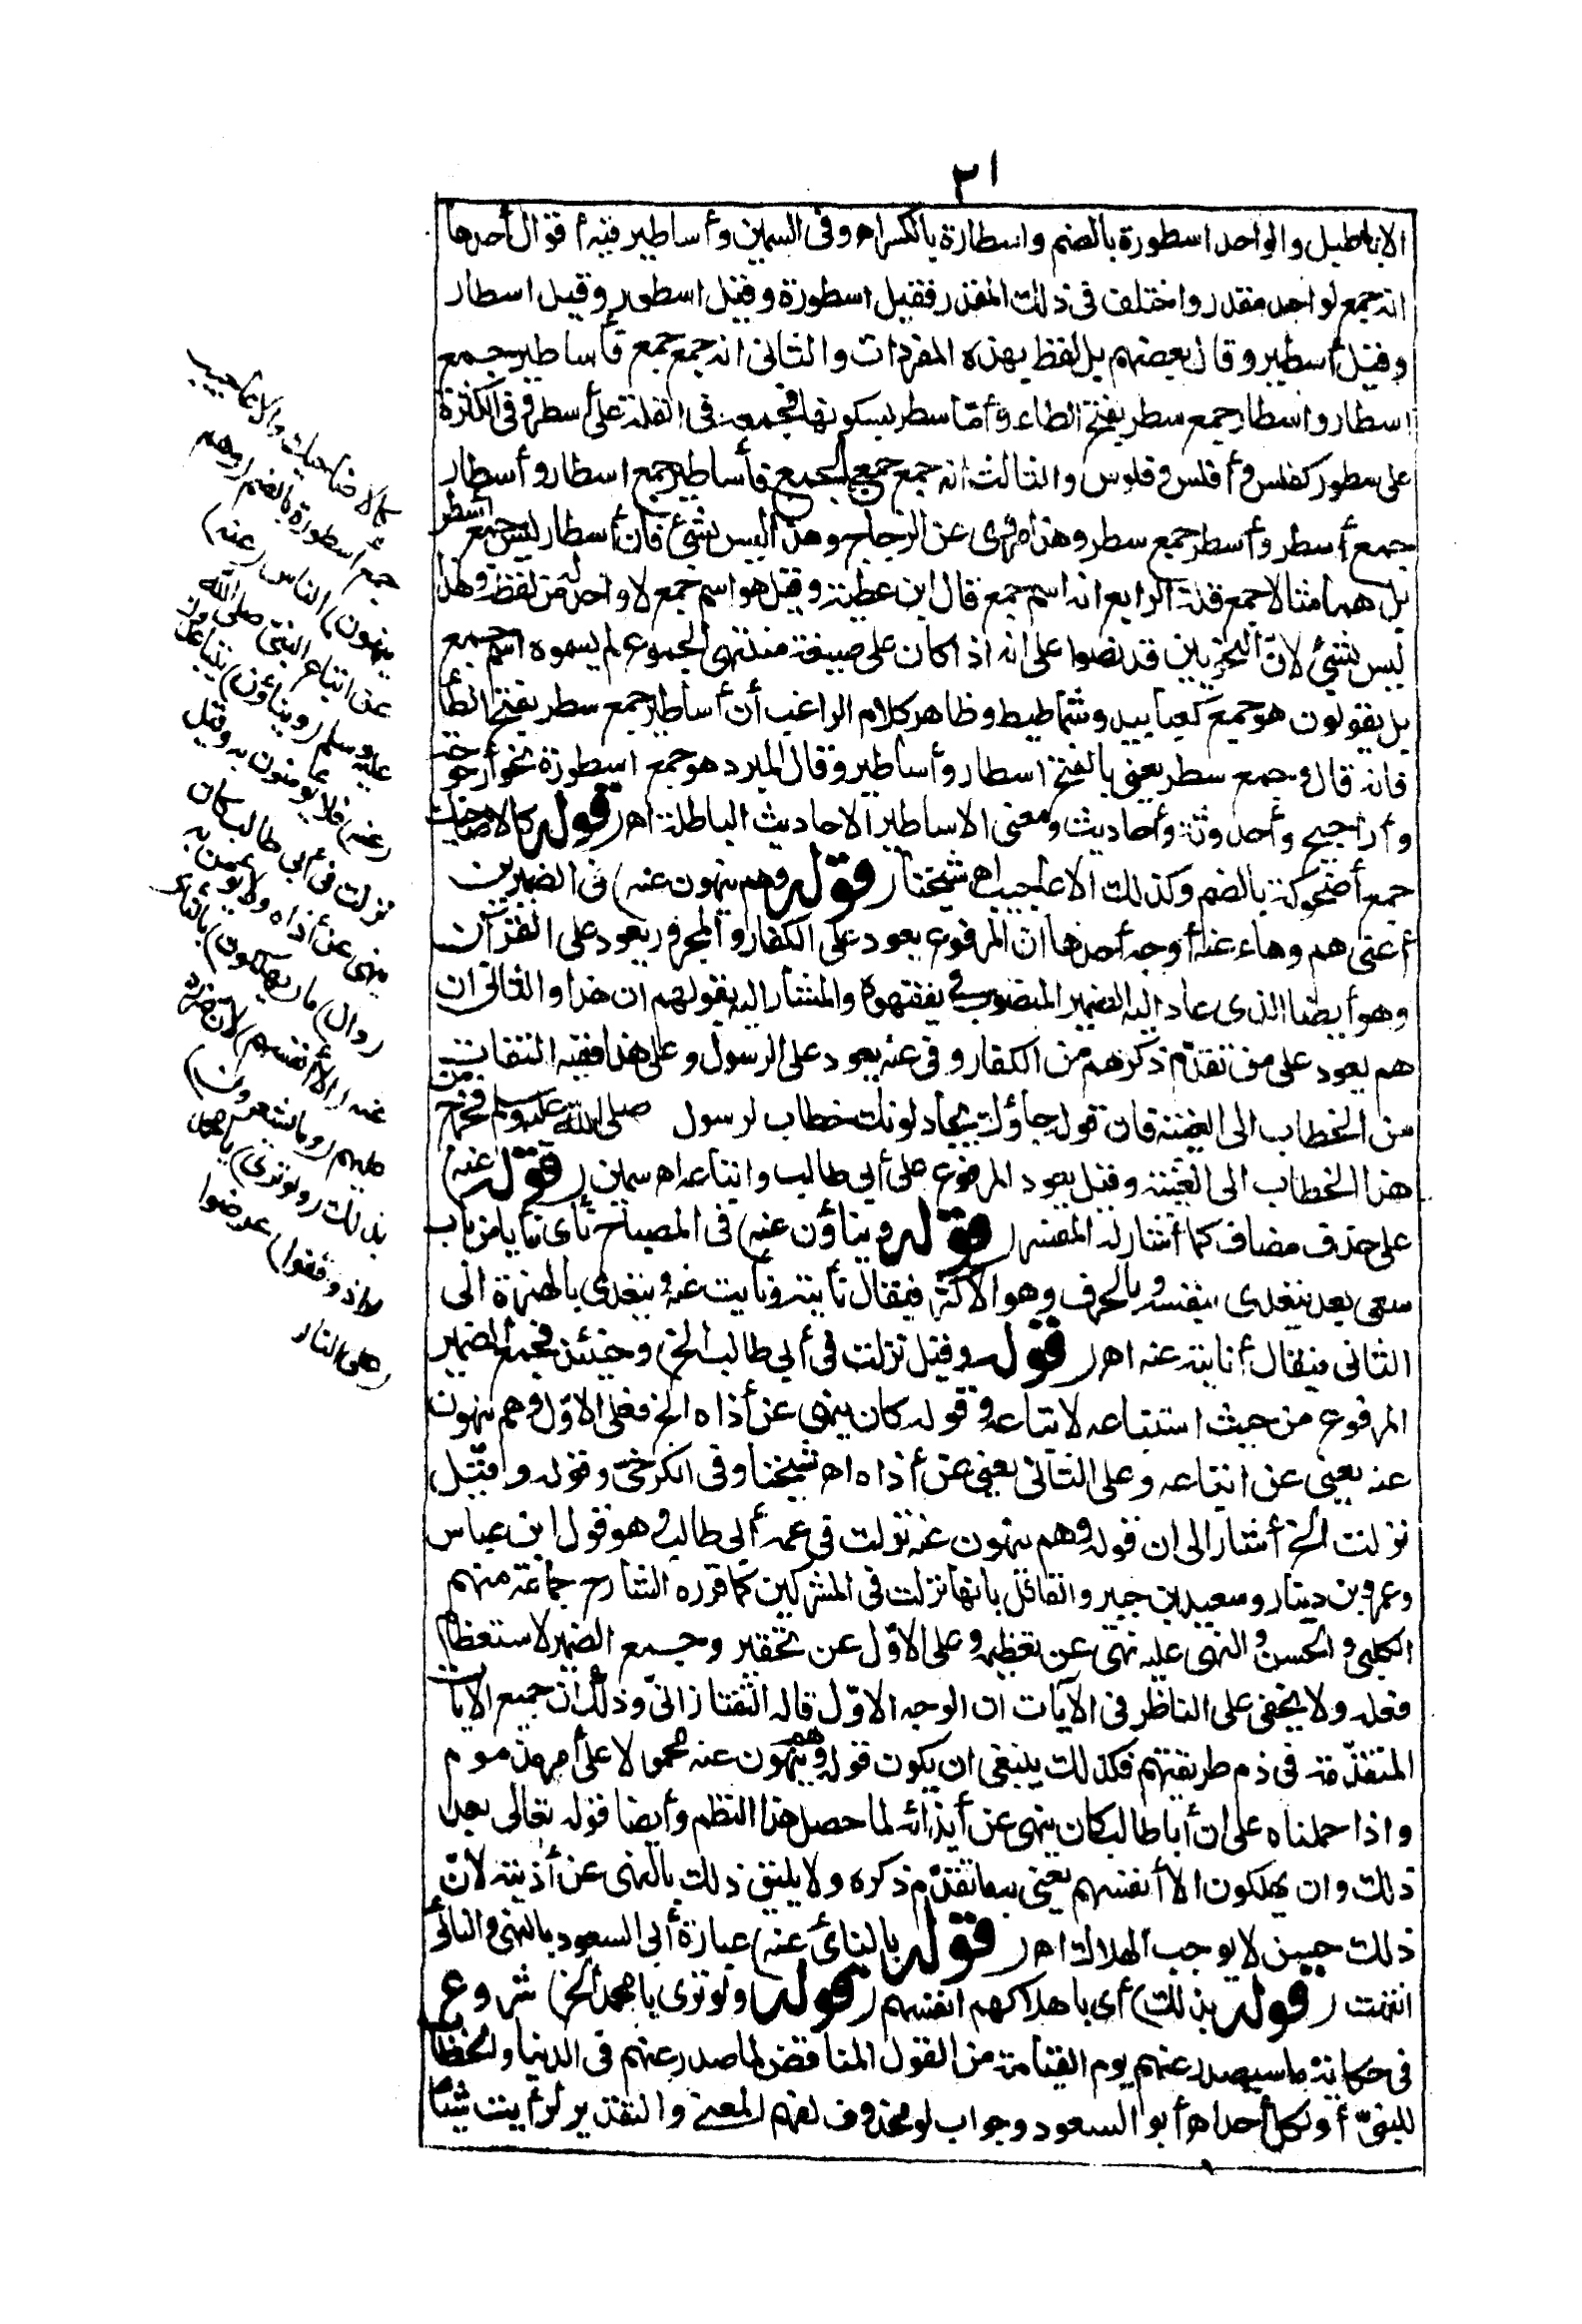 ٣١
الاباطيل والواحد اسطورة بالضم واسطارة بالكسر اه وفى السمين وأساطير فيه أقوال أحدها
انه جمع لواحد مقدر واختلف فى ذلك المقدر فقيل اسطورة وقيل اسطور وقيل اسطار
وقيل أسطير وقال بعضهم بل لفظ بهذه المفردات والثانى انه جمع جمع فأساطير جمع
اسطار واسطار جمع سطر بفتح الطاء وأمّا سطر بسكونها فجمعه فى القلة على أسطر وفى الكثرة
على سطور كفلس وأفلس وفلوس والثالث انه جمع جمع الجمع فأساطير جمع اسطار وأسطار
جمع أسطر وأسطر جمع سطر وهذا مروى عن الزجاج وهذا ليس بشئ فان أسطار ليس جمع أسطر
بل هما مثالا جمع قلة الرابع انه اسم جمع قال ابن عطية وقيل هو اسم جمع لا واحد له من لفظه وهذا
ليس بشئ لانّ النحويين قد نصوا على انه اذا كان على صيغة منتهى الجموع لم يسموه اسم جمع
بل يقولون هو جمع كعبابيد وشماطيط وظاهر كلام الراغب أن أساطير جمع سطر بفتح الطا
فانه قال وجمع سطر يعنى بالفتح اسطار وأساطير وقال المبرد هو جمع اسطورة نحو أرجوحة
وأراجيح وأحدوثة وأحاديث ومعنى الاساطير الاحاديث الباطلة اهر (قوله كالاضاحيك
جمع أضحوكة بالضم وكذلك الاعاجيب اه شيخنا (قوله وهم ينهون عنه) فى الضميرين
أعنى هم وهاء عنه أوجه أحدها ان المرفوع يعود على الكفار والمجرور يعود على القرآن
وهو أيضا الذى عاد اليه الضمير المنصوب فى يفقهوه والمشار اليه بقولهم ان هذا والثانى ان
هم يعود على من تقدّم ذكرهم من الكفار وفى عنه يعود على الرسول وعلى هذا ففيه التفات من
من الخطاب الى الغيبة فان قوله جاؤك يجادلونك خطاب لرسول صلى الله عليه وسلم فخرج
هذا الخطاب الى الغيبة وقيل يعود المرفوع على أبى طالب واتباعه اه سمين (قوله عنه)
على حذف مضاف كما أشار له المفسر (قوله وينأون عنه) فى المصباح نأى نأيا من باب
سعى بعد يتعدى بنفسه وبالحرف وهو الاكثر فيقال نأيته ونأيت عنه ويتعدى بالهمزة الى
الثانى فيقال أنأيته عنه اهر (قوله وقيل نزلت فى أبى طالب الخ) وحينئذ فجمع الضمير
المرفوع من حيث استتباعه لاتباعه وقوله كان ينهى عن أذاه الخ فعلى الاوّل وهم ينهون
عنه يعنى عن اتباعه وعلى الثانى يعنى عن أذاه اه شيخنا وفى الكرخىّ وقوله وقيل
نزلت الخ أشار الى ان قوله وهم ينهون عنه نزلت فى عمه أبى طالب وهو قول ابن عباس
وعمرو بن دينار وسعيد بن جبير والقائل بانها نزلت فى المشركين كما قرره الشارح جماعة منهم
الكلبى والحسن والنهى عليه نهى عن تعظيمه وعلى الاوّل عن تحقير وجمع الضمير لاستعظام
فعله ولا يخفى على الناظر فى الآيات ان الوجه الاوّل قاله التفتازانىّ وذلك ان جميع الآيات
المتقدّمة فى ذم طريقتهم فكذلك ينبغى ان يكون قوله وهم ينهون عنه محمولا على أمر مذموم
واذا حملناه على ان أبا طالب كان ينهى عن أيذائه لما حصل هذا النظم وأيضا قوله تعالى بعد
ذلك وان يهلكون الا أنفسهم يعنى به ما تقدّم ذكره ولا يليق ذلك بالنهى عن أذيته لانّ
ذلك حسن لا يوجب الهلاك اهر (قوله بالنأى عنه) عبارة أبى السعود بالنهى والنأى
انتهت (قوله بذلك) أى باهلاكهم انفسهم (قوله ولو ترى يا محمد الخ) شروع
فى حكاية ما سيصدر عنهم يوم القيامة من القول المناقض لما صدر عنهم فى الدنيا والخطاب
للنبىّ أو لكل أحد اه أبو السعود وجواب لو محذوف لفهم المعنى والتقدير لرأيت شيئا
كالاضاحيك والاعاجيب
جمع أسطورة بالضم (وهم
ينهون) الناس (عنه)
عن اتباع النبىّ صلى الله
عليه وسلم (وينأون) يتباعدون
(عنه) فلا يؤمنون به وقيل
نزلت فى أبى طالب كان
ينهى عن أذاه ولا يؤمن به
(وان) ما (يهلكون) بالنأى
عنه (الا أنفسهم) لانّ ضرره
عليهم (وما يشعرون)
بذلك (ولو ترى) يا محمد
(اذ وقفوا) عرضوا
(على النار